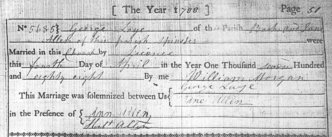 [ The Year 1788 ] Page 51
No 5685 } George Laye of this Parish
Allen of this parish Spinster were
Married in this Church by Licence
this fourth Day of April in the Year One Thousand seven Hundred
and eighty eight By me William Morgan
This Marriage was solemnized between Us George Laye
Allen
in the Presence of Ann Allen
Allen